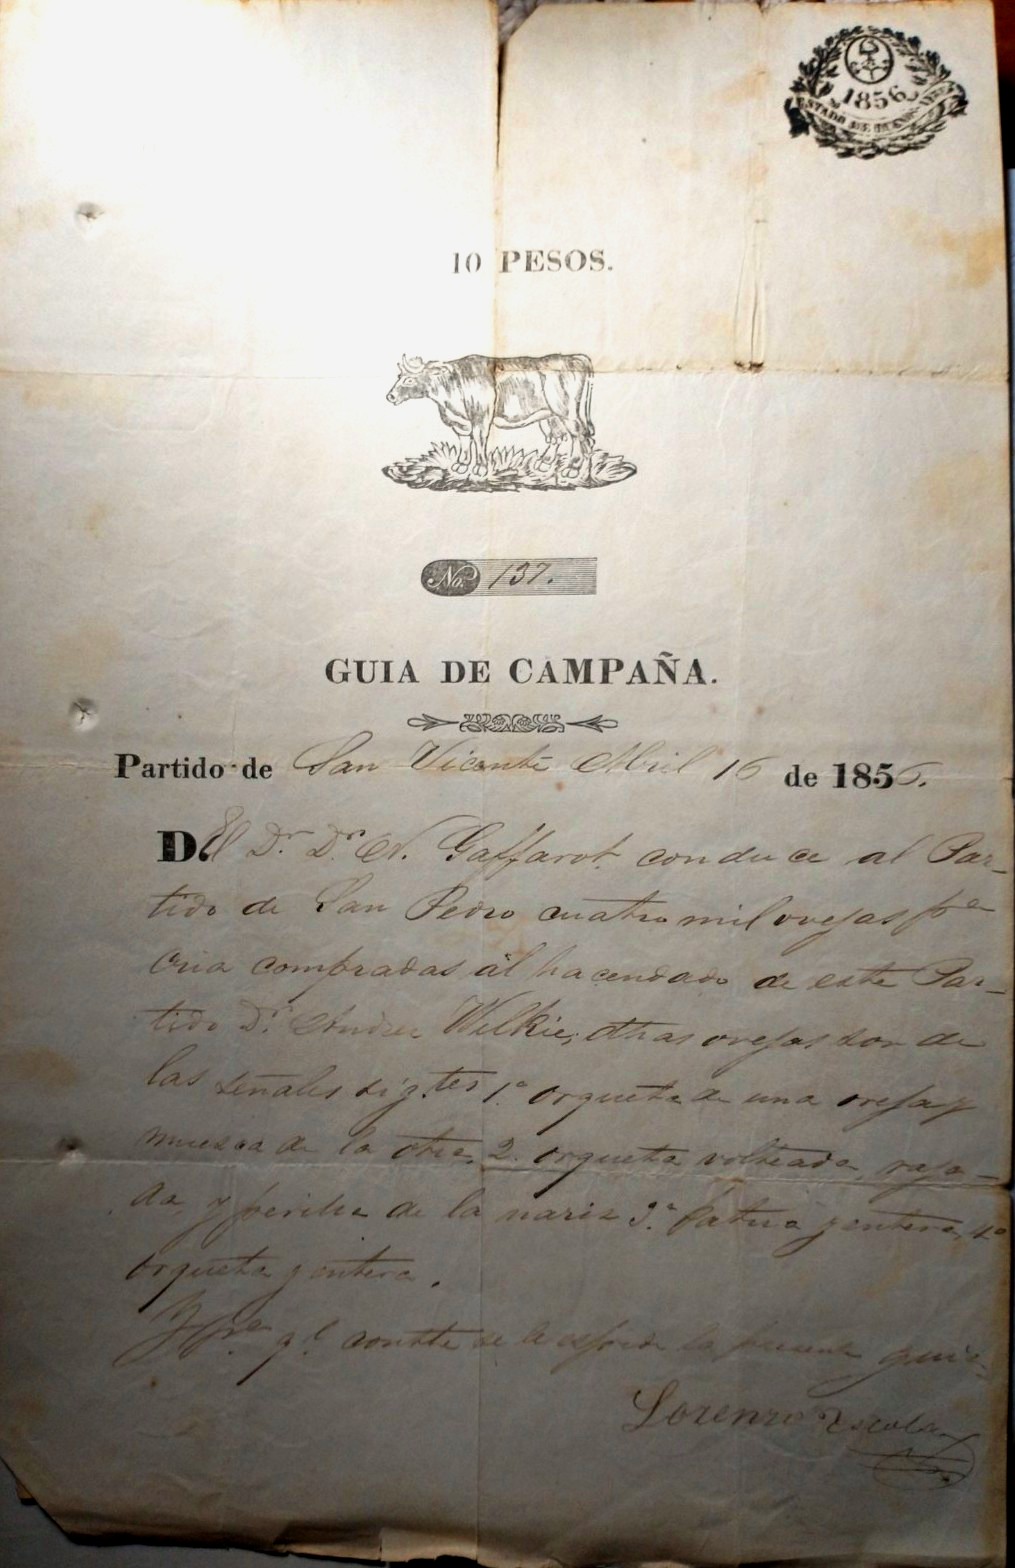 1856
ESTADO DE BUENOS
10 PESOS.
No 137.
GUIA DE CAMPAÑA.
Partido de San Vicente Abril 16 de 1856.
D. El Dr. Dn. N. Gaffarot conduce al Par-
tido de San Pedro cuatro mil ovejas pa
cria compradas al hacendado de este Par-
tido Dn. Andres Wilkie, otras ovejas son de
las señales sigtes 1a orqueta de una oreja y
muesca de la otra 2a orqueta volteada
da y de la naris 3a y
orqueta y entera.
Y pa ql conste le la presente guia
Lorenzo Escola